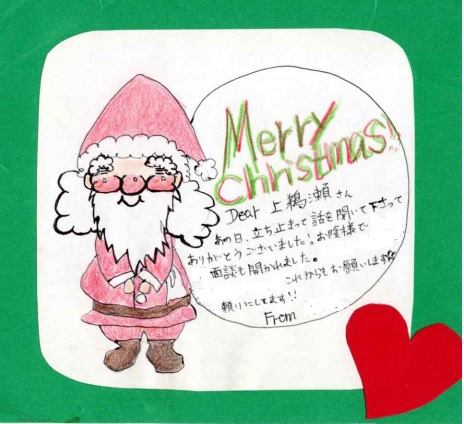 Merry
Christmas!!
Dear 上鵜瀬さん
あの日、立ち止まって話を聞いて下さって
ありがとうございました!お陰様で
面談も開かれました。
これからもお願いします☆
頼りにしてます!!
From